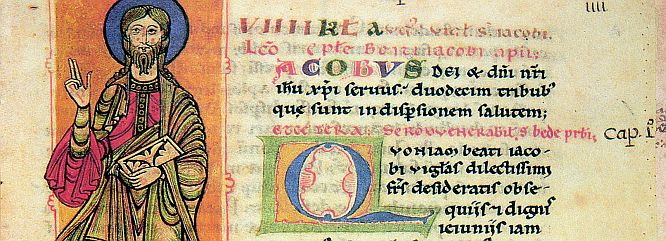 IIII
VIIII kła sci iacobi.
Beati iacobi apli;
IACOBVS Dei & dñi nr̃i
ihu xp̃i seruus. duodecim tribubꝰ
quę sunt in dispsionem salutem;
ET CETERA. SERMO VENERABILIS bede prbi; Cap. I.
QVONIAM beati iaco
bi vigłas dilectissimi
fr̃s desideratis obse
quiis & dignis
ieiuniis iam